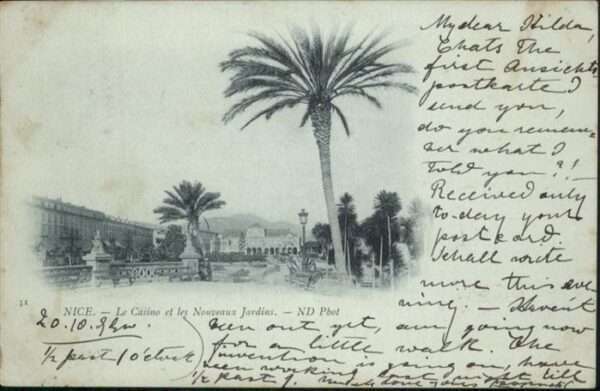 My dear Hilda,
Thats the
first Ansichts
postkarte I
send you,
do you remem-
ber what I
told you?!
Received only
to-day your
postcard.
Shall write
more this eve
ning. - Havent
been out yet, am going now
for a little walk. The
invention is going on, have
been working last night till
1/2 past 1. Much love yours
51
NICE. - Le Casino et les Nouveaux Jardins. - ND Phot
20.10.99
1/2 past 1 o'clock